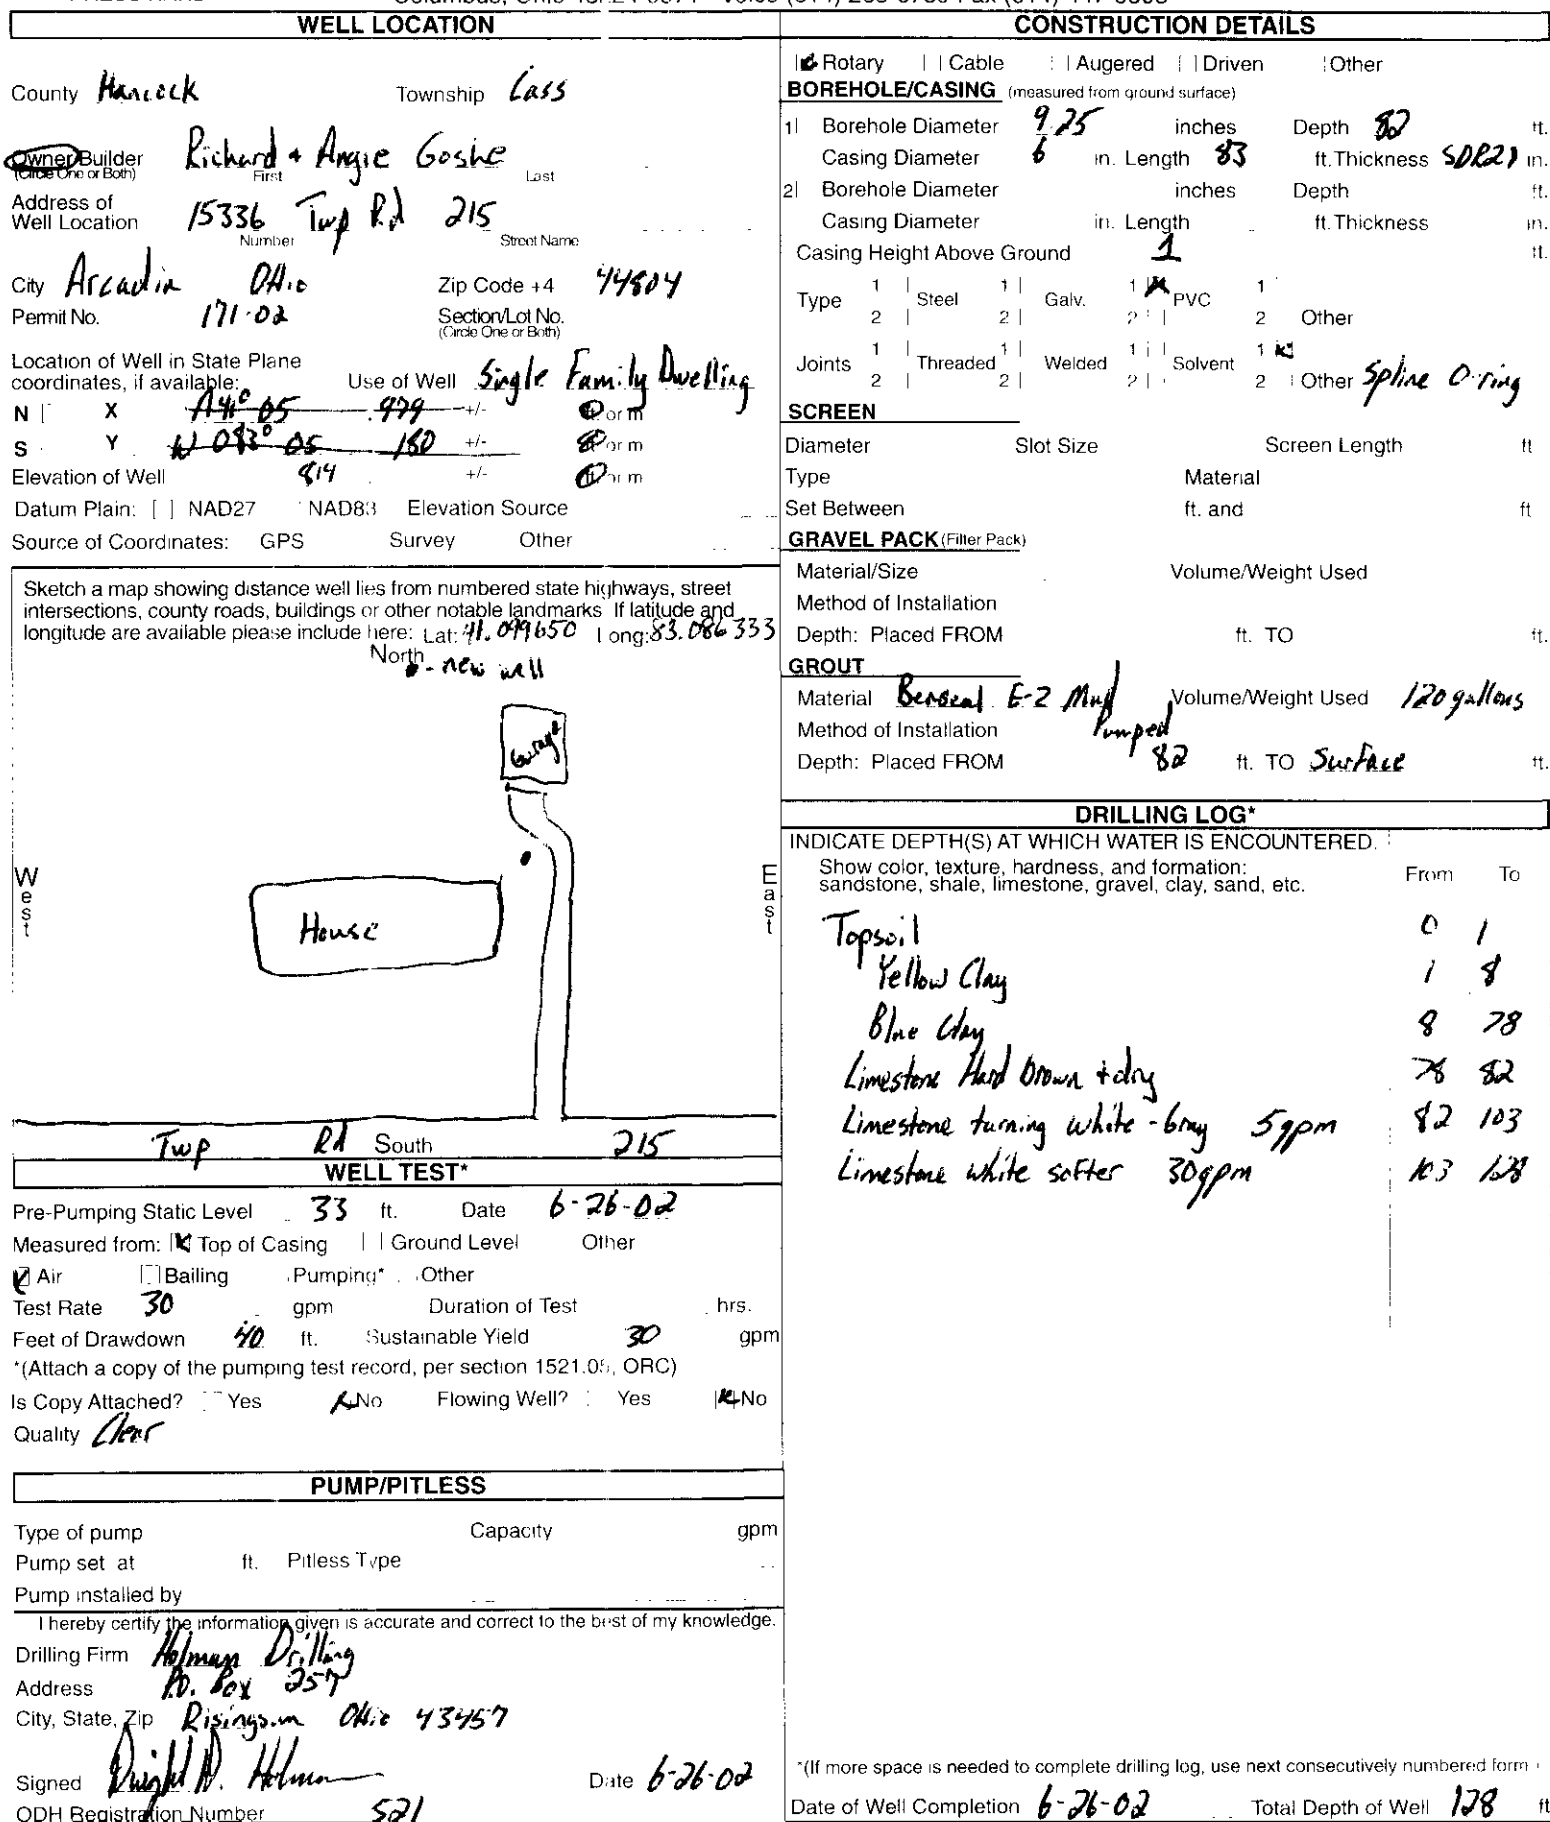 WELL LOCATION
County Hancock Township Cass
Owner Builder Richard + Angie Goshe
(Circle One or Both) First Last
Address of
Well Location 15336 Twp Rd 215
Number Street Name
City Arcadia Ohio Zip Code +4 44804
Permit No. 171-02 Section/Lot No.
(Circle One or Both)
Location of Well in State Plane
coordinates, if available: Use of Well Single Family Dwelling
N X 41° 05 .979 +/- or m
S Y W 083° 05 180 +/- or m
Elevation of Well 814 +/- or m
Datum Plain: [ ] NAD27 NAD83 Elevation Source
Source of Coordinates: GPS Survey Other
Sketch a map showing distance well lies from numbered state highways, street
intersections, county roads, buildings or other notable landmarks If latitude and
longitude are available please include here: Lat: 41.099650 Long: 83.086333
North
- new well
Garage
West
East
House
Twp Rd South 215
WELL TEST*
Pre-Pumping Static Level 33 ft. Date 6-26-02
Measured from: Top of Casing Ground Level Other
Air Bailing Pumping* Other
Test Rate 30 gpm Duration of Test hrs.
Feet of Drawdown 40 ft. Sustainable Yield 30 gpm
*(Attach a copy of the pumping test record, per section 1521.05, ORC)
Is Copy Attached? Yes No Flowing Well? Yes No
Quality Clear
PUMP/PITLESS
Type of pump Capacity gpm
Pump set at ft. Pitless Type
Pump installed by
I hereby certify the information given is accurate and correct to the best of my knowledge.
Drilling Firm Holman Drilling
Address P.O. Box 257
City, State, Zip Risingsun Ohio 43457
Signed Dwight D. Holman Date 6-26-02
ODH Registration Number 521
CONSTRUCTION DETAILS
Rotary Cable Augered Driven Other
BOREHOLE/CASING (measured from ground surface)
1 Borehole Diameter 9.25 inches Depth 82 ft.
Casing Diameter 6 in. Length 83 ft. Thickness SDR21 in.
2 Borehole Diameter inches Depth ft.
Casing Diameter in. Length ft. Thickness in.
Casing Height Above Ground 1 ft.
Type 1 Steel 1 Galv. 1 PVC 1
2 2 2 2 Other
Joints 1 Threaded 1 Welded 1 Solvent 1
2 2 2 2 Other Spline O-ring
SCREEN
Diameter Slot Size Screen Length ft
Type Material
Set Between ft. and ft
GRAVEL PACK (Filter Pack)
Material/Size Volume/Weight Used
Method of Installation
Depth: Placed FROM ft. TO ft.
GROUT
Material Benseal E-Z Mud Volume/Weight Used 120 gallons
Method of Installation Pumped
Depth: Placed FROM 82 ft. TO Surface ft.
DRILLING LOG*
INDICATE DEPTH(S) AT WHICH WATER IS ENCOUNTERED.
Show color, texture, hardness, and formation:
sandstone, shale, limestone, gravel, clay, sand, etc. From To
Topsoil 0 1
Yellow Clay 1 8
Blue Clay 8 78
Limestone Hard brown + dry 78 82
Limestone turning white - Gray 5gpm 82 103
Limestone white softer 30gpm 103 128
*(If more space is needed to complete drilling log, use next consecutively numbered form
Date of Well Completion 6-26-02 Total Depth of Well 128 ft